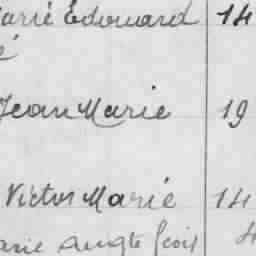 Marié Edouard 14
é
Jean Marie 19
Victor Marie 14
Marie 4